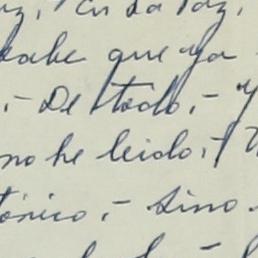 En la Paz,
sabe que ya
.- De todo,- y
no he leido,-
tónico,- sino